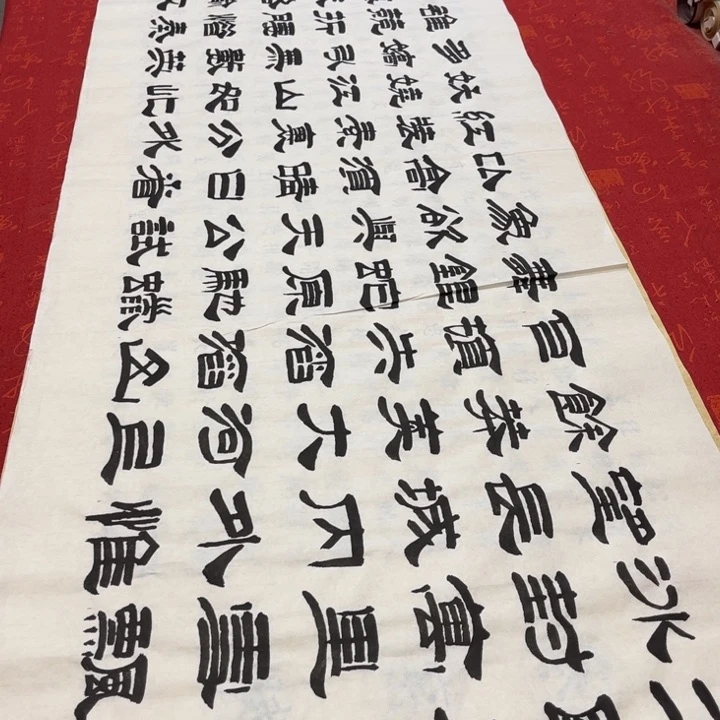 冰封萬里雪飄
望長城內外惟
餘莽莽大河上
下頓失滔滔山
舞銀蛇原馳蠟
象欲與天公試
比高須晴日看
紅裝素裹分外
妖嬈江山如此
多嬌引無數英
雄競折腰惜秦